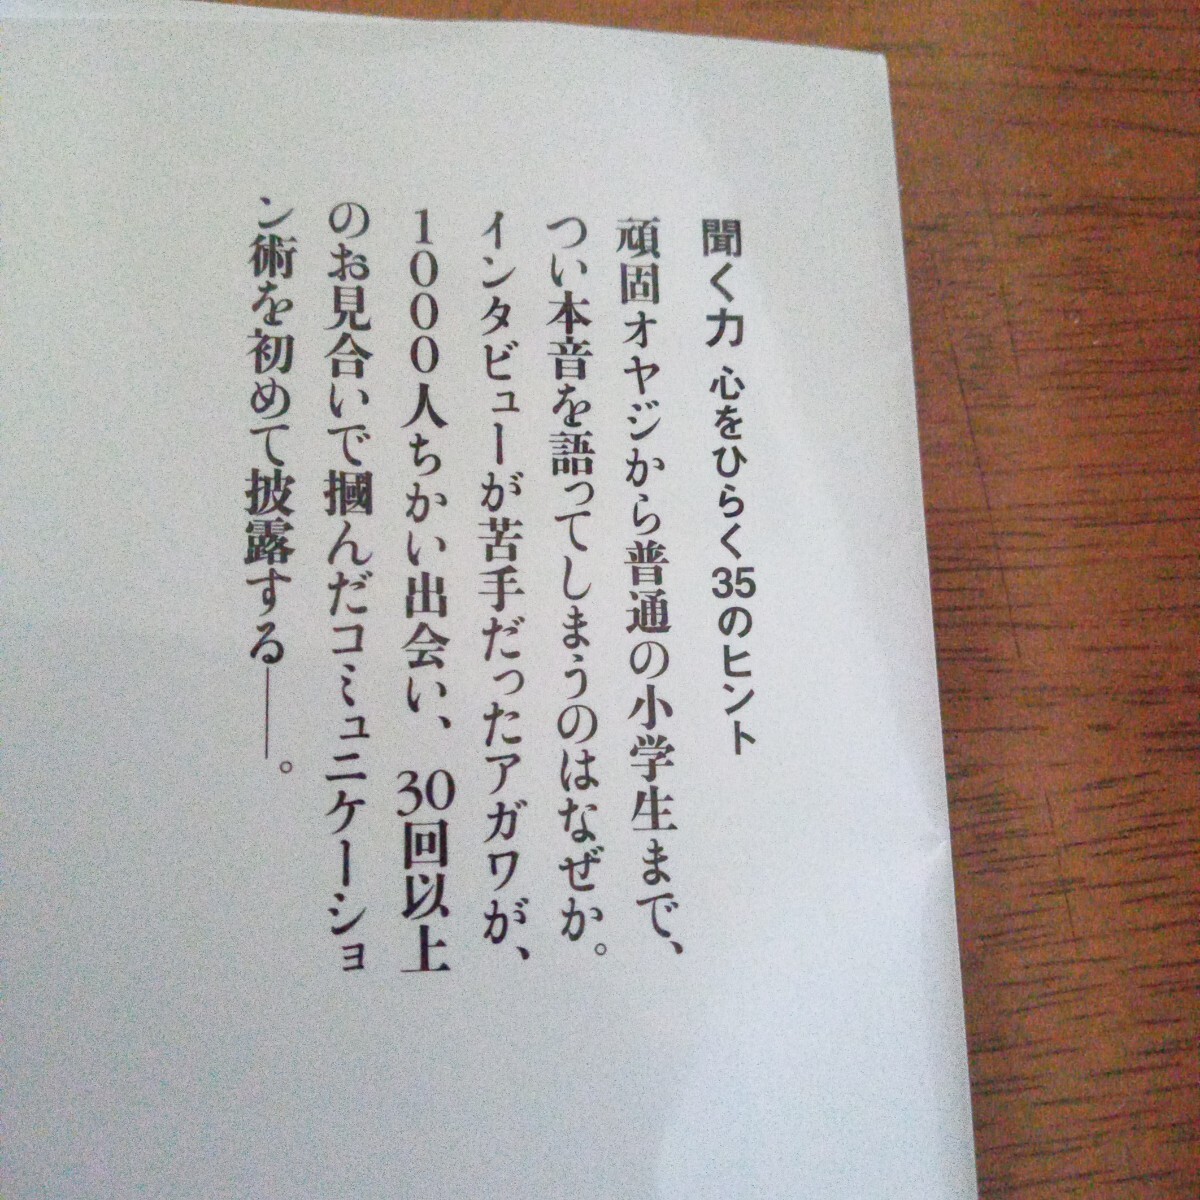 聞く力 心をひらく35のヒント
頑固オヤジから普通の小学生まで、
つい本音を語ってしまうのはなぜか。
インタビューが苦手だったアガワが、
1000人ちかい出会い、30回以上
のお見合いで摑んだコミュニケーショ
ン術を初めて披露する――。